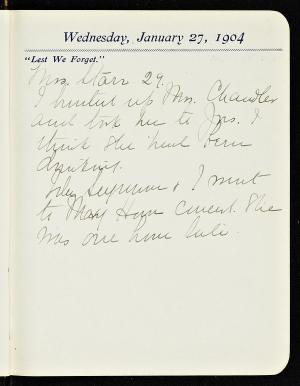 Wednesday, January 27, 1904
"Lest We Forget."
Mrs. Starr 29.
I hunted up Mrs. Chandler
and took her to Jns. I
think she had been
drinking.
Seymour & I went
to Mary Howe concert. She
was one hour late.